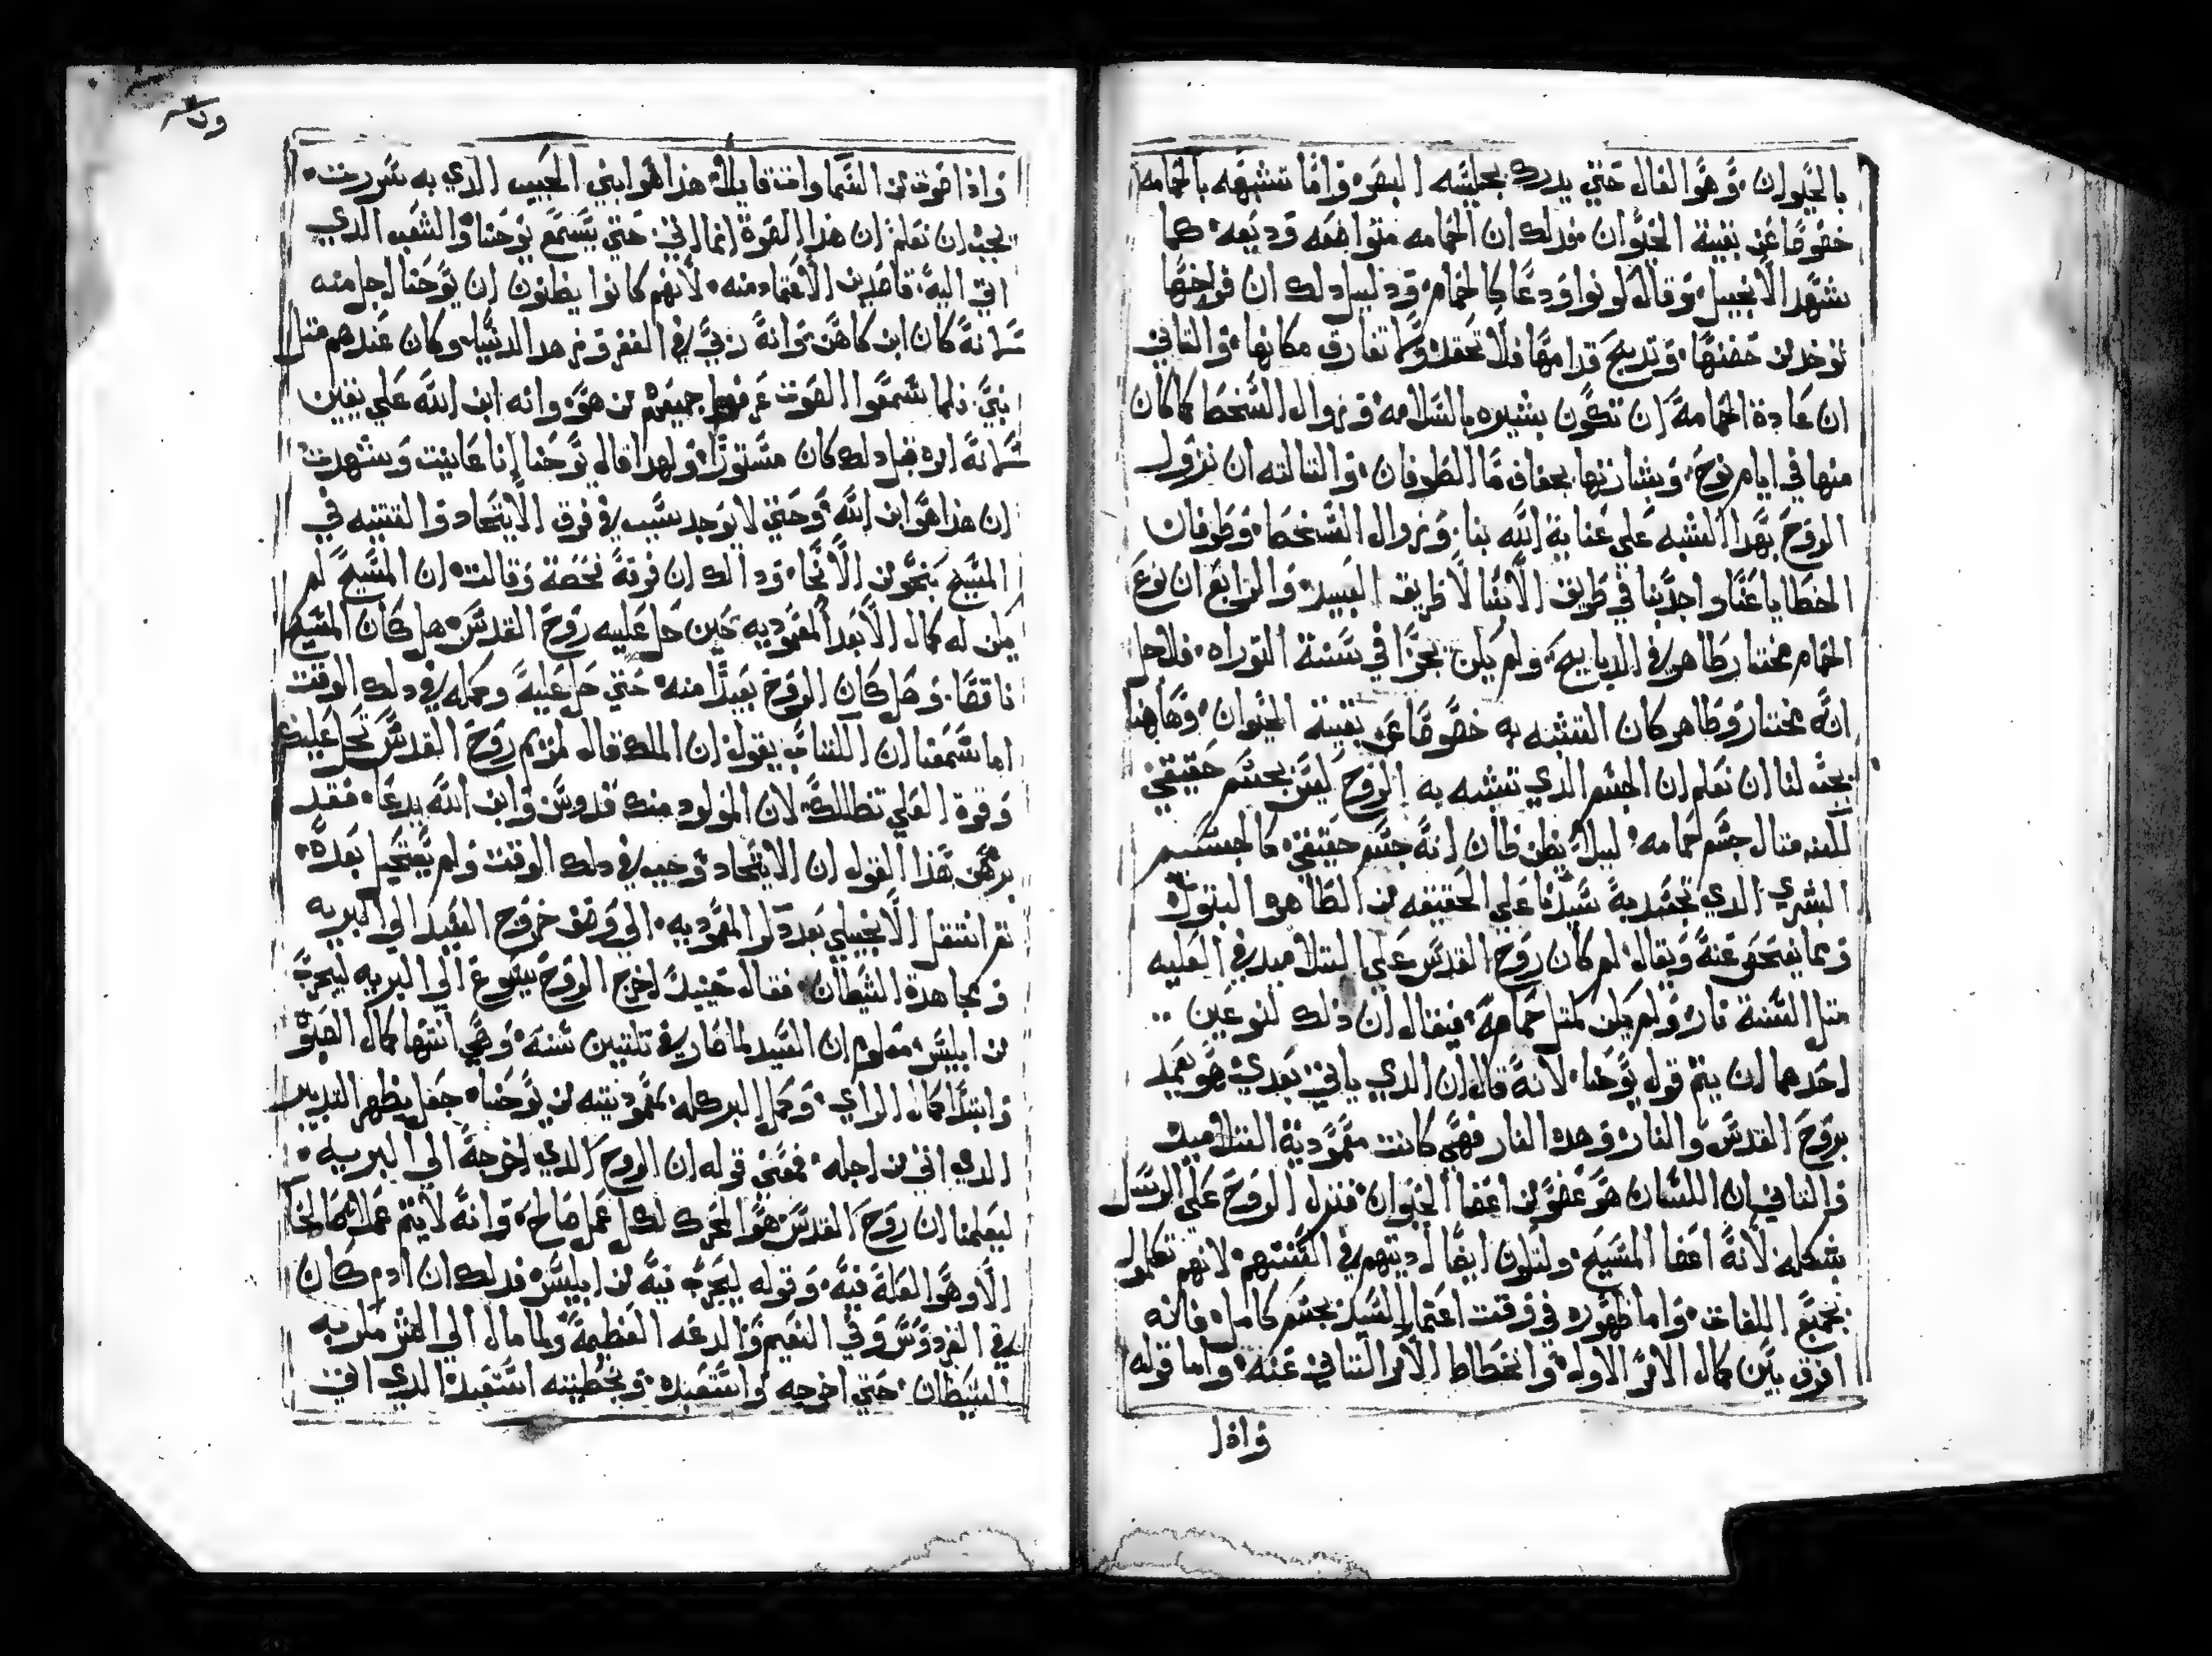 بالحيوان، وهو الفال حتي يدرك بحليته البصر، واما تشبهه بالحمامه
خصوصا عن بقية الحيوان فذلك ان الحمامه متواضعه وديعه، كما
شهد الانجيل، وقال كونوا ودعا كالحمام، ودليل دلك ان فراخها
توخد من حضنها، وتدبح قدامها فلا تحقد ولا تفارق مكانها، والتاني
ان عادة الحمامة ان تكون بشيره بالسلامه وزوال السخط كما كان
منها في ايام نوح، وبشارتها بجفاف ما الطوفان، والتالته ان نزول
الروح بهدا الشبه علي عناية الله بنا، وزوال السخط، وطوفان
الخطايا عنا واجدبنا في طريق الابنا لا طريق العبيد، والرابع ان نوع
الحمام مختار طاهر في الدبايح، ولم يكن نجزا في سنة التوراه، فلاجل
انه مختار وطاهر كان التشبه به خصوصا عن بقية الحيوان، وهاهنا
يجب لنا ان نعلم ان الجسم الدي تشبه به الروح ليس بجسم حقيقي
لكنه متال جسم حمامه، ليلا يظن ظان انه جسم حقيقي، كالجسم
البشري الدي تجسد به سيدنا علي الحقيقه من الطاهره البتول
وبما يفحص عنه ويقال، لم كان روح القدس علي التلاميد في العليه
متل السنة نار، ولم يكن كمتل حمامة، فيقال ان ذلك لنوعين ..
احدهما ان يتم قول يوحنا، لانه قال ان الدي ياتي بعدي هو يعمد
بروح القدس والنار، وهده النار فهي كانت معمودية التلاميد
والتاني ان اللسان هو عضو من اعضا الحيوان، فنزل الروح علي الرسل
بشكله لانه اعضا المسيح، ولتكون ايضا اديتهم في السنتهم، لانهم تكلموا
بجميع اللغات، واما ظهوره في وقت اعتماد السيد بجسم كامل، فانه
افرق بين كمال الامر الاول، وانحطاط الامر التاني عنه، واما قوله
واذا
واذا صوت من السماوات قايلا، هذا هو ابني الحبيب الدي به سررت،
يجب ان نعلم ان هذا الصوت انما اتي، حتي يسمع يوحنا، والشعب الدي
اتي اليه، قاصدين الاعتماد منه، لانهم كانوا يظنون ان يوحنا اجل منه
لانه كان ابن كاهن، وانه ربي في القفر وزهد الدنيا، وكان عندهم متل
نبي، فلما سمعوا الصوت عرفوا جميعهم من هو، وانه ابن الله علي يقين
لانه قبل دلك كان مستورا، ولهدا قال يوحنا انا عاينت وشهدت
ان هذا هو ابن الله، وحتي لا يوجد سبب في فرق الاتحاد والتتنيه في
المسيح بنحو من الانحا، ودالك ان فرقة نجصة وقالت، ان المسيح لم
يكن له كمال الا بعد المعموديه حين حل عليه روح القدس، هل كان المسيح
ناقصا، وهل كان الروح بعيدا منه، حتي حل عليه وكمله في دلك الوقت
اما سمعنا ان الكتاب يقول، ان الملك قال لمريم روح القدس تحل عليك
وقوة العلي تظللك، لان المولود منك قدوس وابن الله يدعا، فقد
برهن هذا القول ان الاتحاد وجب في دلك الوقت ولم يستحيل بعده،
تم انتقل الانجيلي بعد دكر المعموديه، الي وصف خروج السيد الي البريه
ومجاهدة الشيطان، فقال حينيد اخرج الروح يسوع الي البريه ليجرب
من ابليس، معلوم ان السيد لما صار في تلتين سنه، وهي انتها كمال الصبو
وابتدا كمال الراي، وكمل البر كله، بمعموديته من يوحنا، جعل يظهر التدبير
الدي اتي من اجله، فمعني قوله ان الروح الدي اخرجه الي البريه،
ليعلمنا ان روح القدس هو المحرك لكل عمل صالح، وانه لا يتم عملا صالحا
الا وهو العلة فيه، وقوله ليجرب فيه من ابليس، فدلك ان ادم كان
في الفردوس وفي النعيم والدعه العظيمة، ولما مال الي الغش مكر به
الشيطان، حتي اخرجه واستعبده، وبخطيته استعبد الدي اتي